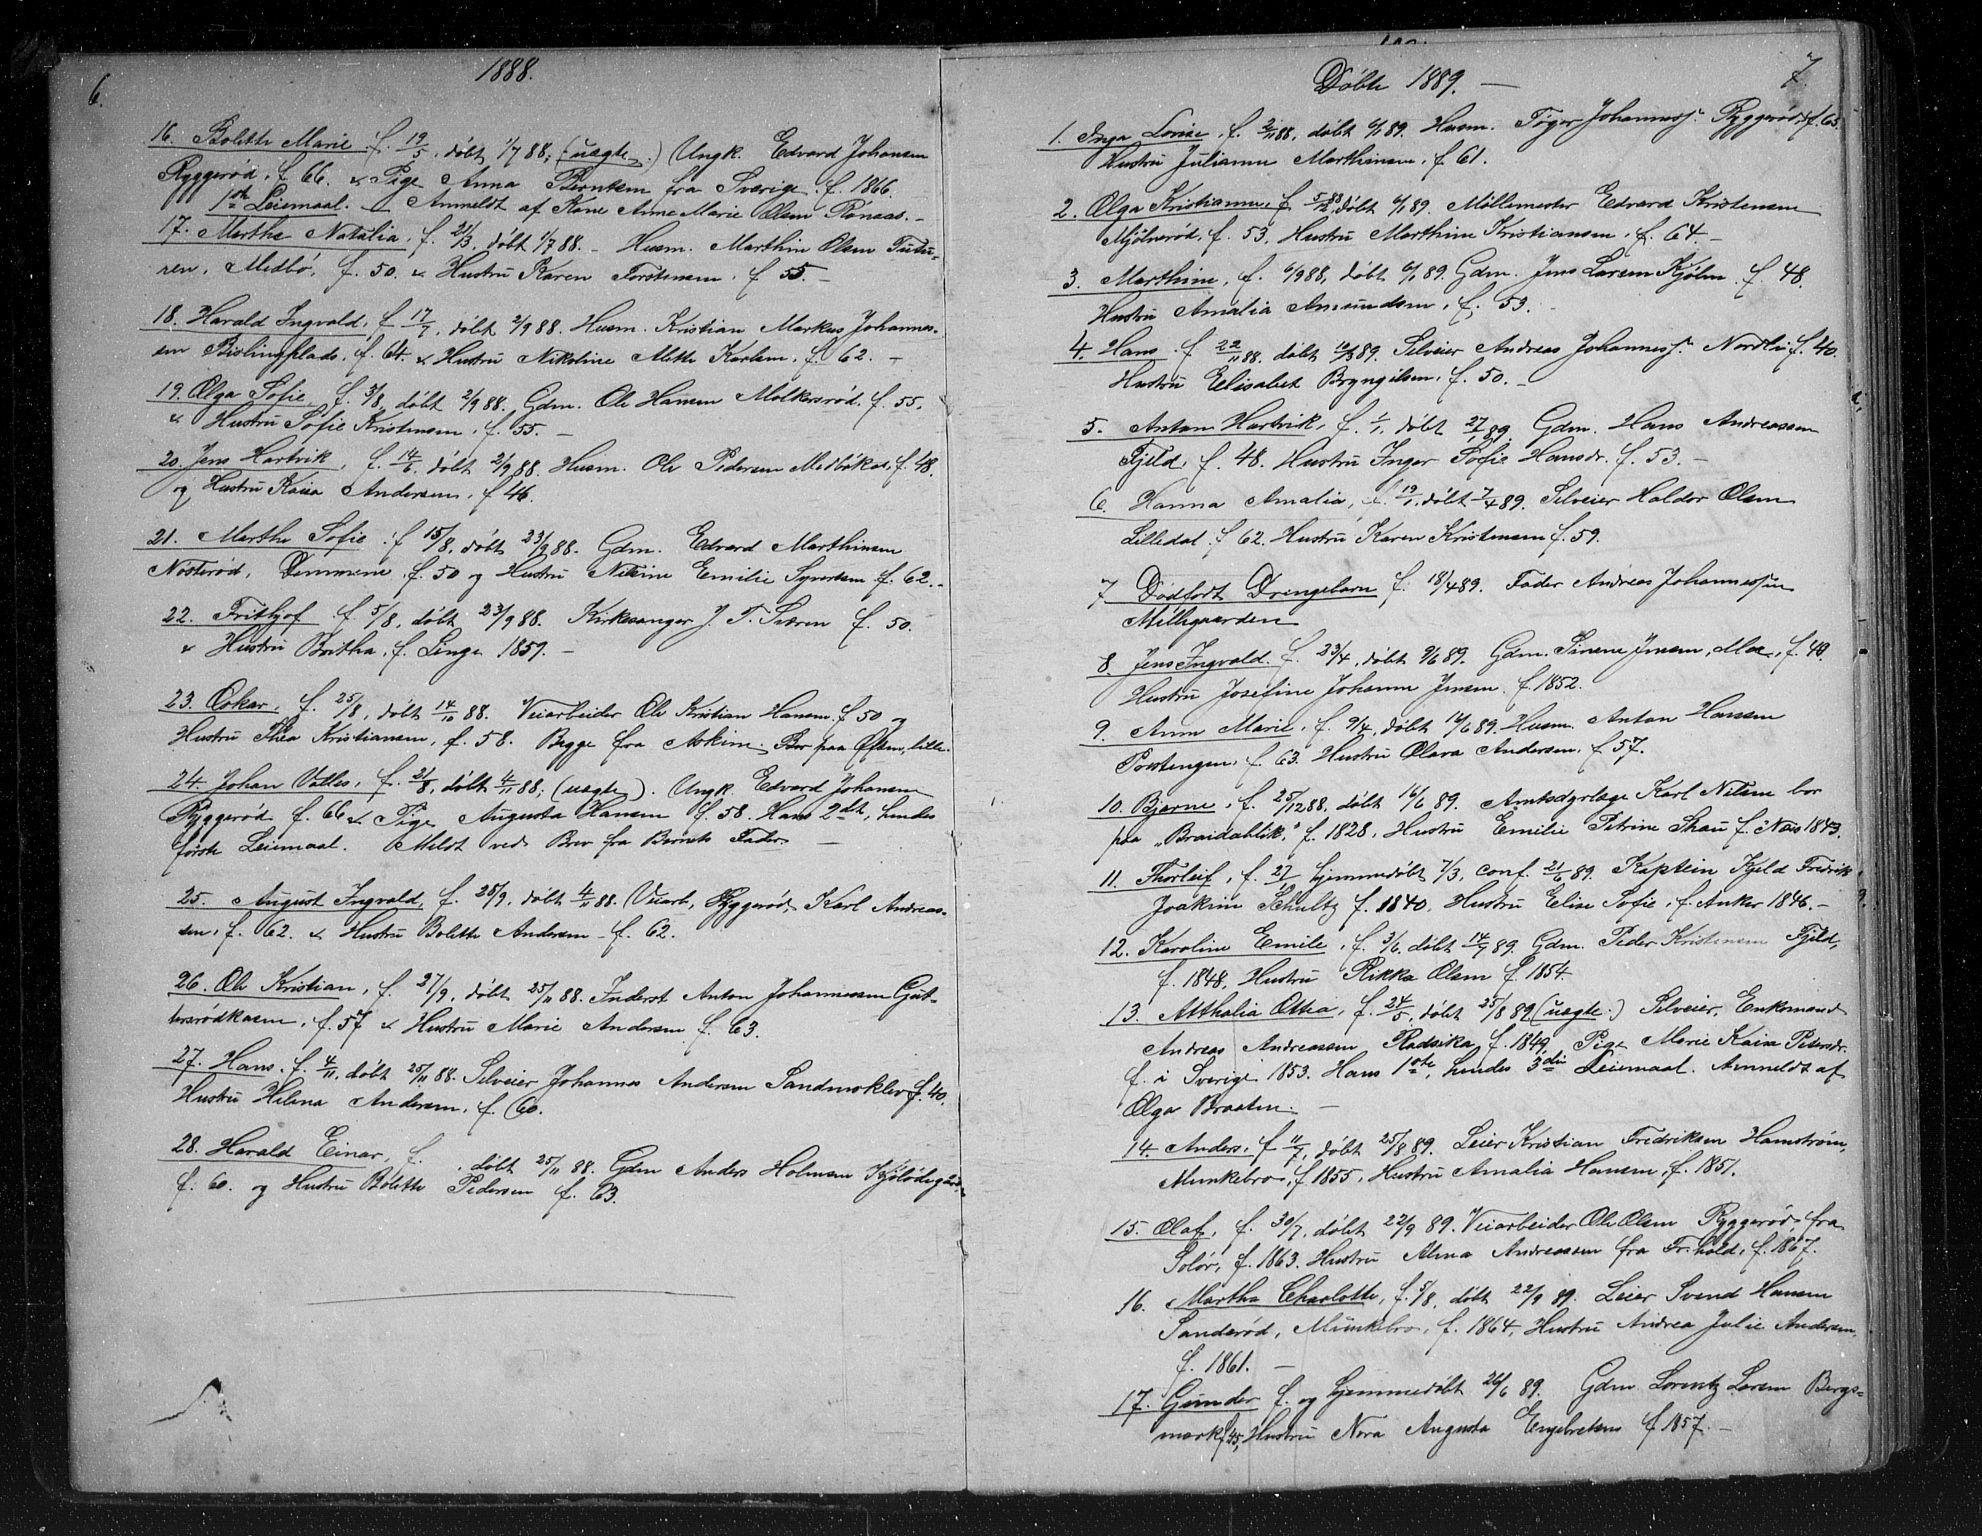 6.
1888.
16. Bolette Marie. f. 19/5, døbt 1/7 88; (uægte.) Ungk. Edvard Johansen
Ryggerød, f. 66. & Pige Anna Berntsen fra Sverige. f. 1866.
1ste Leiemaal. Anmeldt af Kone Anne Marie Olsen Rønaas. –
17. Marthe Natalia, f. 21/3, døbt 1/7 88. – Husm. Marthin Olsen
Medbø, f. 50. & Hustru Karen Torstensen. f. 55. –
18. Harald Ingvald, f. 17/7, døbt 2/9 88. Husm. Kristian Markus Johannes-
sen Bislingplads. f. 64. & Hustru Nikoline Mette Karlsen. f. 62. –
19. Olga Sofie, f. 3/8, døbt 2/9 88. Gdm. Ole Hansen Molkersrød. f. 55.
& Hustru Sofie Kristensen. f. 55. –
20. Jens Hartvik, f. 14/6, døbt 2/9 88. Husm. Ole Pedersen Medbøkas. f. 48.
og Hustru Kaisa Andersen. f. 46.
21. Marthe Sofie. f 15/8, døbt 23/9 88. Gdm. Edvard Marthinsen
Nosterød, f. 50 og Hustru Nikine Emilie Syversen f. 62. –
22. Frithjof f. 5/8, døbt 23/9 88. Kirkesanger J. T. f. 50.
& Hustru Bertha, f. Linge 1859. –
23. Oskar, f. 25/8, døbt 14/10 88. Veiarbeider Ole Kristian Hansen. f. 50 og
Hustru Thea Kristiansen, f. 58. Begge fra Askim. Bor paa lille.
24. Johan Valles, f. 21/8, døbt 4/11 88; (uægte). Ungk. Edvard Johansen
Ryggerød f. 66 & Pige Augusta Hansen f. 58. Hans 2det, hendes
første Leiemaal. Meldt ved Brev fra Barnets Fader. –
25. August Ingvald, f. 25/9, døbt 4/11 88. Veiarb. Ryggerød Karl Andreas-
sen, f. 62. & Hustru Bolette Andersen – f. 62.
26. Ole Kristian, f. 27/9, døbt 25/11 88. Inderst Anton Johannessen Gut-
tersrødkasen, f. 57 & Hustru Marie Andersen f. 63.
27. Hans. f. 4/11, døbt 25/11 88. Selveier Johannes Andersen Sandmoklev f. 40.
Hustru Helena Andersen, f. 60.
28. Harald Einar, f. , døbt 25/11 88. Gdm Anders Holmsen
f. 60. og Hustru Bolette Pedersen f. 63.
7.
Døbte 1889. –
1. Inga Lovise, f. 2/11 88, døbt 6/1 89. Husm. Tøger Johanness. Ryggerød, f. 63.
Hustru Julianne Marthinsen. f. 61.
2. Olga Kristianne, f. 5/12 88, døbt 6/1 89. Møllemester Edvard Kristensen
Mjølnerød, f. 53. Hustru Marthine Kristiansen, f. 64. –
3. Marthine, f. 6/9 88, døbt 6/1 89. Gdm. Jens Larsen Kjølen f. 48.
Hustru Amalia Amundsen, f. 53.
4. Hans f. 22/11 88. døbt 12/3 89. Selveier Andreas Johanness. Nordli f. 40.
Hustru Elisabet Bryngilsen, f. 50. –
5. Anton Hartvik, f. 1/1, døbt 27/1 89. Gdm. Hans Andreassen
Fjeld, f. 48. Hustru Inger Sofie Hansdr. f. 53. –
6. Hanna Amalia, f. 19/1, døbt 7/4 89. Selveier Haldor Olsen
Lilledal. f 62. Hustru Karen Kristensen f. 59.
7 Dødfødt Drengebarn f. 18/4 89. Fader Andreas Johannessen
Møllegaarden
8. Jens Ingvald. f. 23/4, døbt 9/6 89. Gdm. Simen Jensen, Moe, f. 49.
Hustru Josefine Johanne Jensen. f. 1852.
9. Anna Marie, f. 9/4, døbt 14/6 89. Husm. Anton Hansen
Postengen, f. 63. Hustru Olava Andersen, f. 57.
10. Bjarne, f. 25/12 88, døbt 16/6 89. Amtsdyrlæge Karl Nilsen bor
paa „Braidablik,” f. 1828, Hustru Emilie Petrine Skau f. Næs 1843.
11. Thorleif, f. 27/ hjemmedøbt 7/3, conf. 21/6 89. Kaptein Kjeld Fredrik
Joakim Schultz f. 1840. Hustru Elise Sofie, f. Anker 1846. –
12. Karoline Emile, f. 3/6, døbt 14/7 89. Gdm. Peder Kristensen Fjeld,
f. 1848, Hustru Rikka Olsen f. 1854.
13. Atthalia Ottea, f. 24/5, døbt 25/8 89 (uægte.) Selveier, Enkemand
Andreas Andreassen Radsika, f. 1849, Pige Marie Kaisa Petersdr.
f. i Sverige 1853. Hans 1ste, hendes 3die Leiemaal. Anmeldt af
Olga Braaten. –
14. Anders, f 11/7, døbt 25/8 89. Leier Kristian Fredriksen Hamstrøm,
Munkebro, f. 1855, Hustru Amalia Hansen, f. 1851.
15. Olaf, f. 30/7, døbt 22/9 89. Veiarbeider Ole Olsen Ryggerød, fra
Solør, f. 1863. Hustru Alma Andreassen fra Fr.hald, f. 1867.
16. Martha Charlotte, f. 5/8, døbt 22/9 89. Leier Svend Hansen
Sanderød, Munkebro, f. 1864, Hustru Andrea Julie Andersen
f. 1861. –
17. Gunder f. og hjemmedøbt 26/6 89. Gdm. Lorentz Larsen Bergs-
mark f. 45, Hustru Nora Augusta Engebretsens f 1857. –